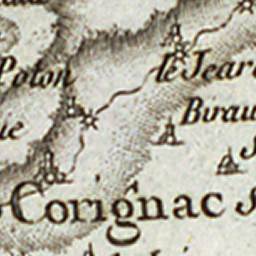 Poton
le Jear
Birau
ue
Corignac